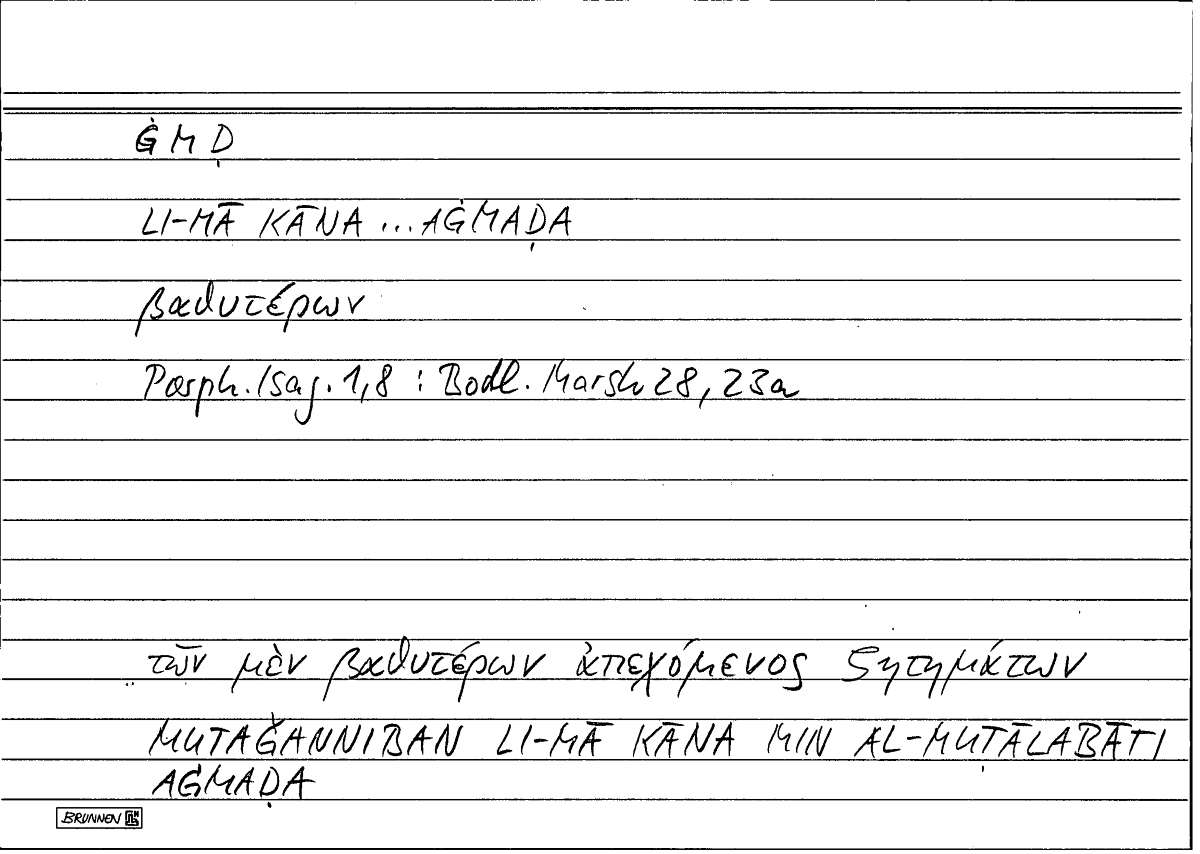 ĠMḌ
LI-MĀ KĀNA ... AĠMAḌA
βαθυτέρων
Porph. Isag. 1,8 : Bodl. Marsh 28, 23a
τῶν μὲν βαθυτέρων ἀπεχόμενος ζητημάτων
MUTAǦANNIBAN LI-MĀ KĀNA MIN AL-MUṬĀLABĀTI
AĠMAḌA
BRUNNEN